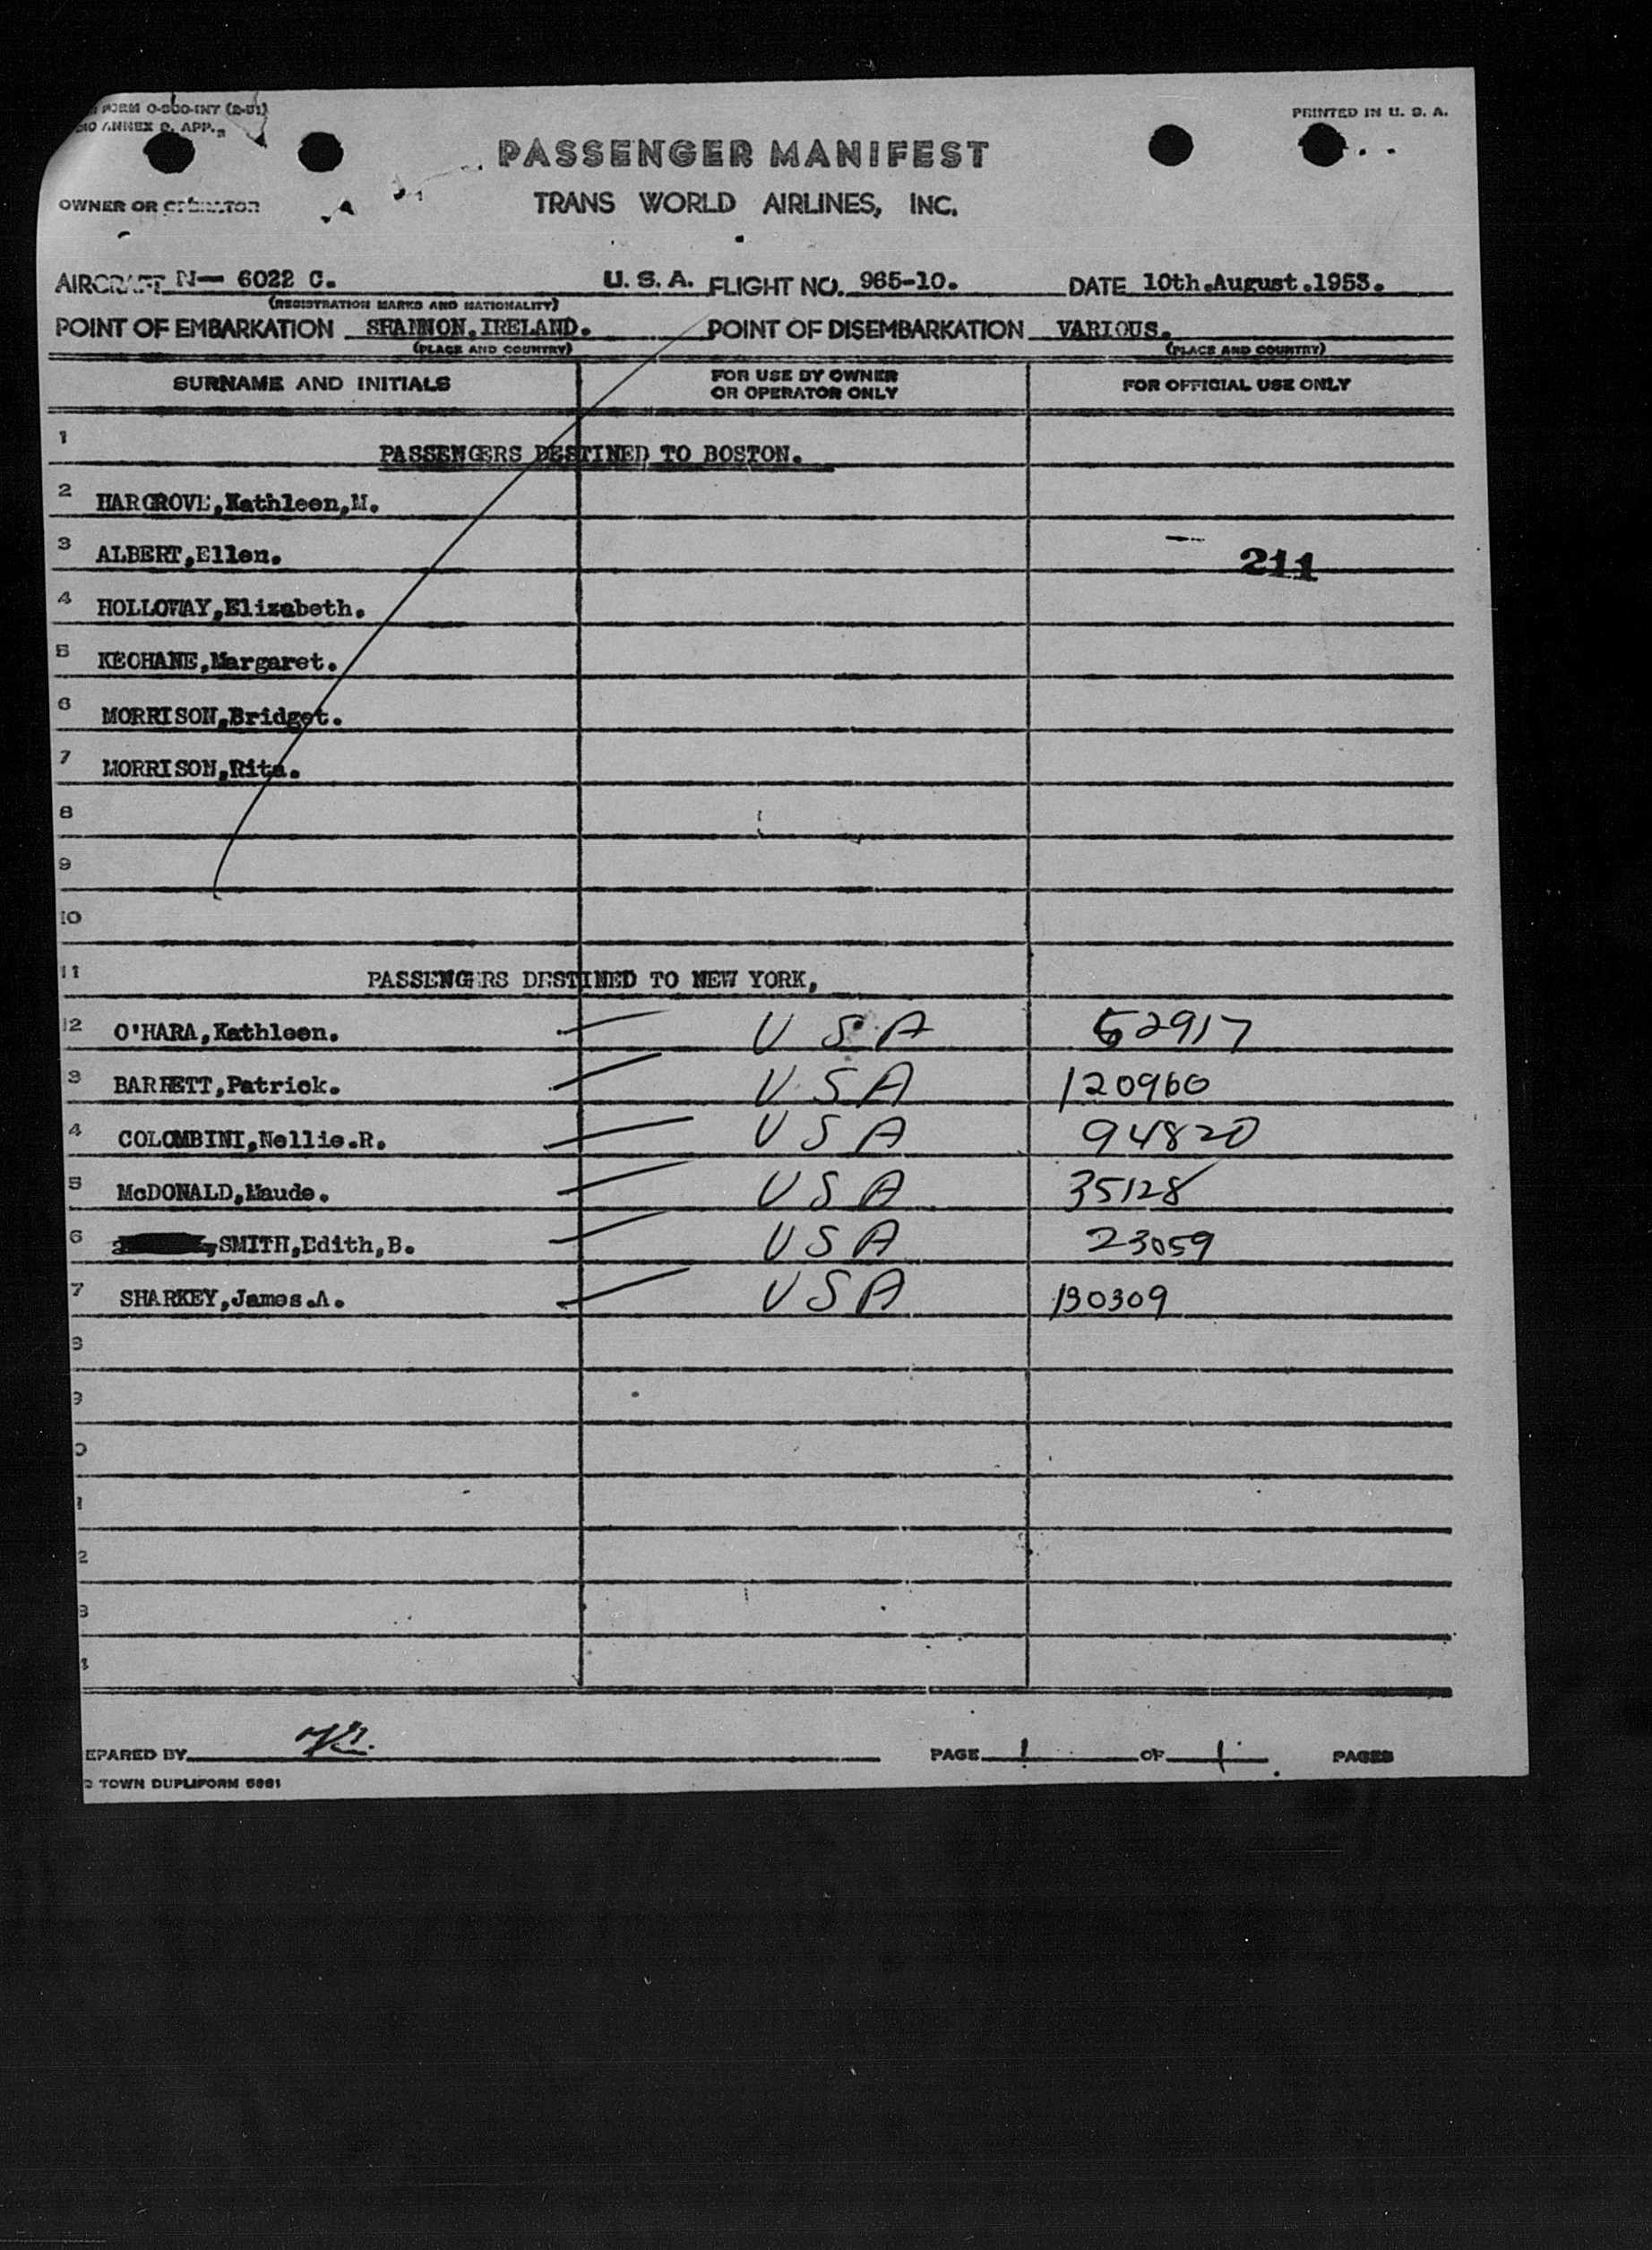 FORM O-800-INT (2-51)
ANNEX 9, APP. 2
PRINTED IN U. S. A.
PASSENGER MANIFEST
OWNER OR OPERATOR
TRANS WORLD AIRLINES, INC.
AIRCRAFT N— 6022 C. U. S. A. FLIGHT NO. 965-10. DATE 10th.August.1953.
(REGISTRATION MARKS AND NATIONALITY)
POINT OF EMBARKATION SHANNON.IRELAND. POINT OF DISEMBARKATION VARIOUS.
(PLACE AND COUNTRY) (PLACE AND COUNTRY)
SURNAME AND INITIALS FOR USE BY OWNER OR OPERATOR ONLY FOR OFFICIAL USE ONLY
1 PASSENGERS DESTINED TO BOSTON.
2 HARGROVE,Kathleen,M.
3 ALBERT,Ellen. 211
4 HOLLOWAY,Elizabeth.
5 KEOHANE,Margaret.
6 MORRISON,Bridget.
7 MORRISON,Rita.
8
9
10
11 PASSENGERS DESTINED TO NEW YORK,
12 O'HARA,Kathleen. U S A 52917
3 BARRETT,Patrick. U S A 120960
4 COLOMBINI,Nellie.R. U S A 94820
5 McDONALD,Maude. U S A 35128
6 SMITH,Edith,B. U S A 23059
7 SHARKEY,James.A. U S A 130309
8
9
0
1
2
3
4
EPARED BY PAGE 1 OF 1 PAGES
TOWN DUPLIFORM 5661